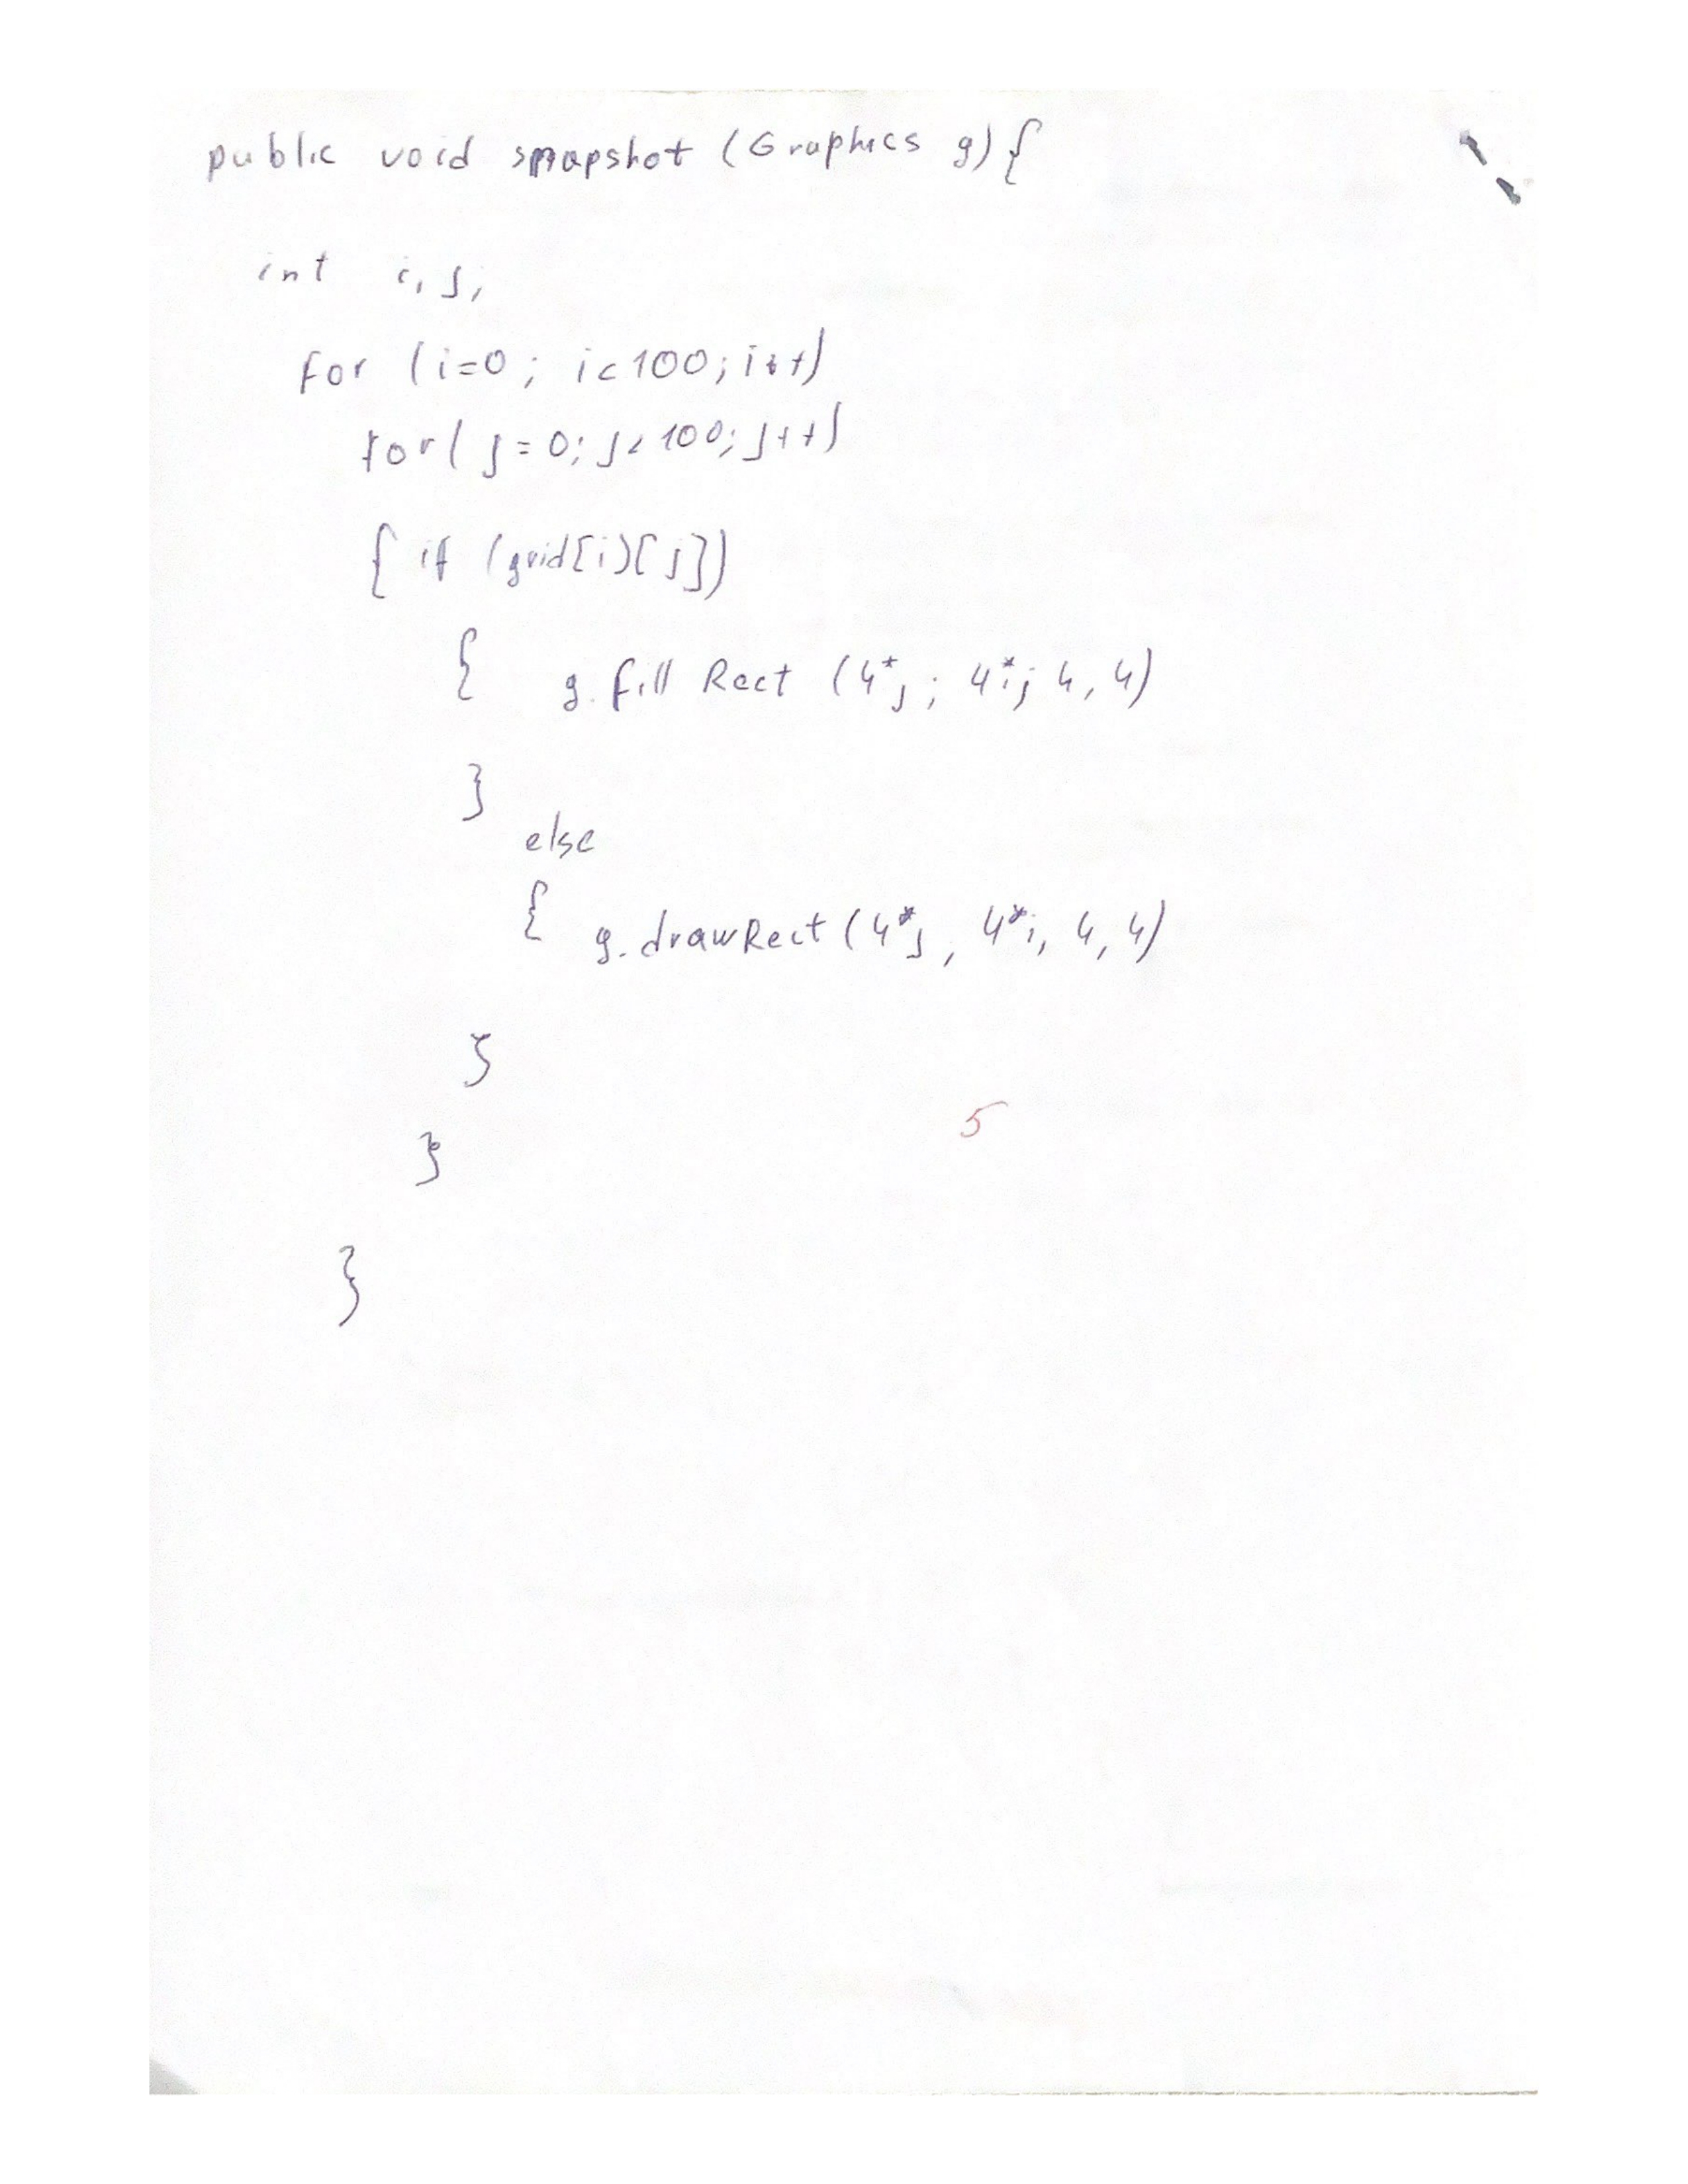 public void snapshot (Graphics g) {
int i, j;
for (i=0; i<100; i++)
for( j=0; j<100; j++)
{ if (grid[i][j])
{ g.fill Rect (4*j; 4*i; 4, 4)
}
else
{ g.drawRect (4*j, 4*i, 4, 4)
}
5
}
}